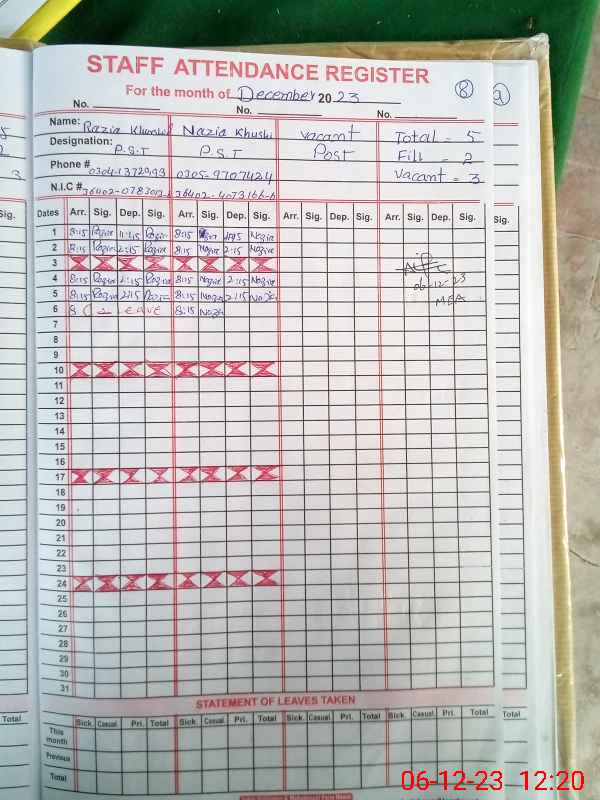 STAFF ATTENDANCE REGISTER
For the month of December 2023
8
No. No. No.
Name: Razia Khurshid Nazia Khushi Vacant Total = 5
Designation: P.S.T P.S.T Post Fill = 2
Phone # 0305-9707424 Vacant = 3
N.I.C #
Dates Arr. Sig. Dep. Sig. Arr. Sig. Dep. Sig. Arr. Sig. Dep. Sig. Arr. Sig. Dep. Sig.
1 8:15 Razia Razia 8:15 Nazia
2 8:15 Razia 2:15 Razia 8:15 Nazia 2:15 Nazia
3
4 8:15 Razia 2:15 Razia 8:15 Nazia 2:15 Nazia
5 8:15 Razia 2:15 Razia 8:15 Nazia 2:15 Nazia
06-12-23
MEA
6 LEAVE 8:15 Nazia
7
8
9
10
11
12
13
14
15
16
17
18
19
20
21
22
23
24
25
26
27
28
29
30
31
STATEMENT OF LEAVES TAKEN
Sick. Casual. Pri. Total Sick. Casual. Pri. Total Sick. Casual. Pri. Total Sick. Casual. Pri. Total
This month
Previous
Total
Sig.
Total
Sig.
Total
06-12-23 12:20